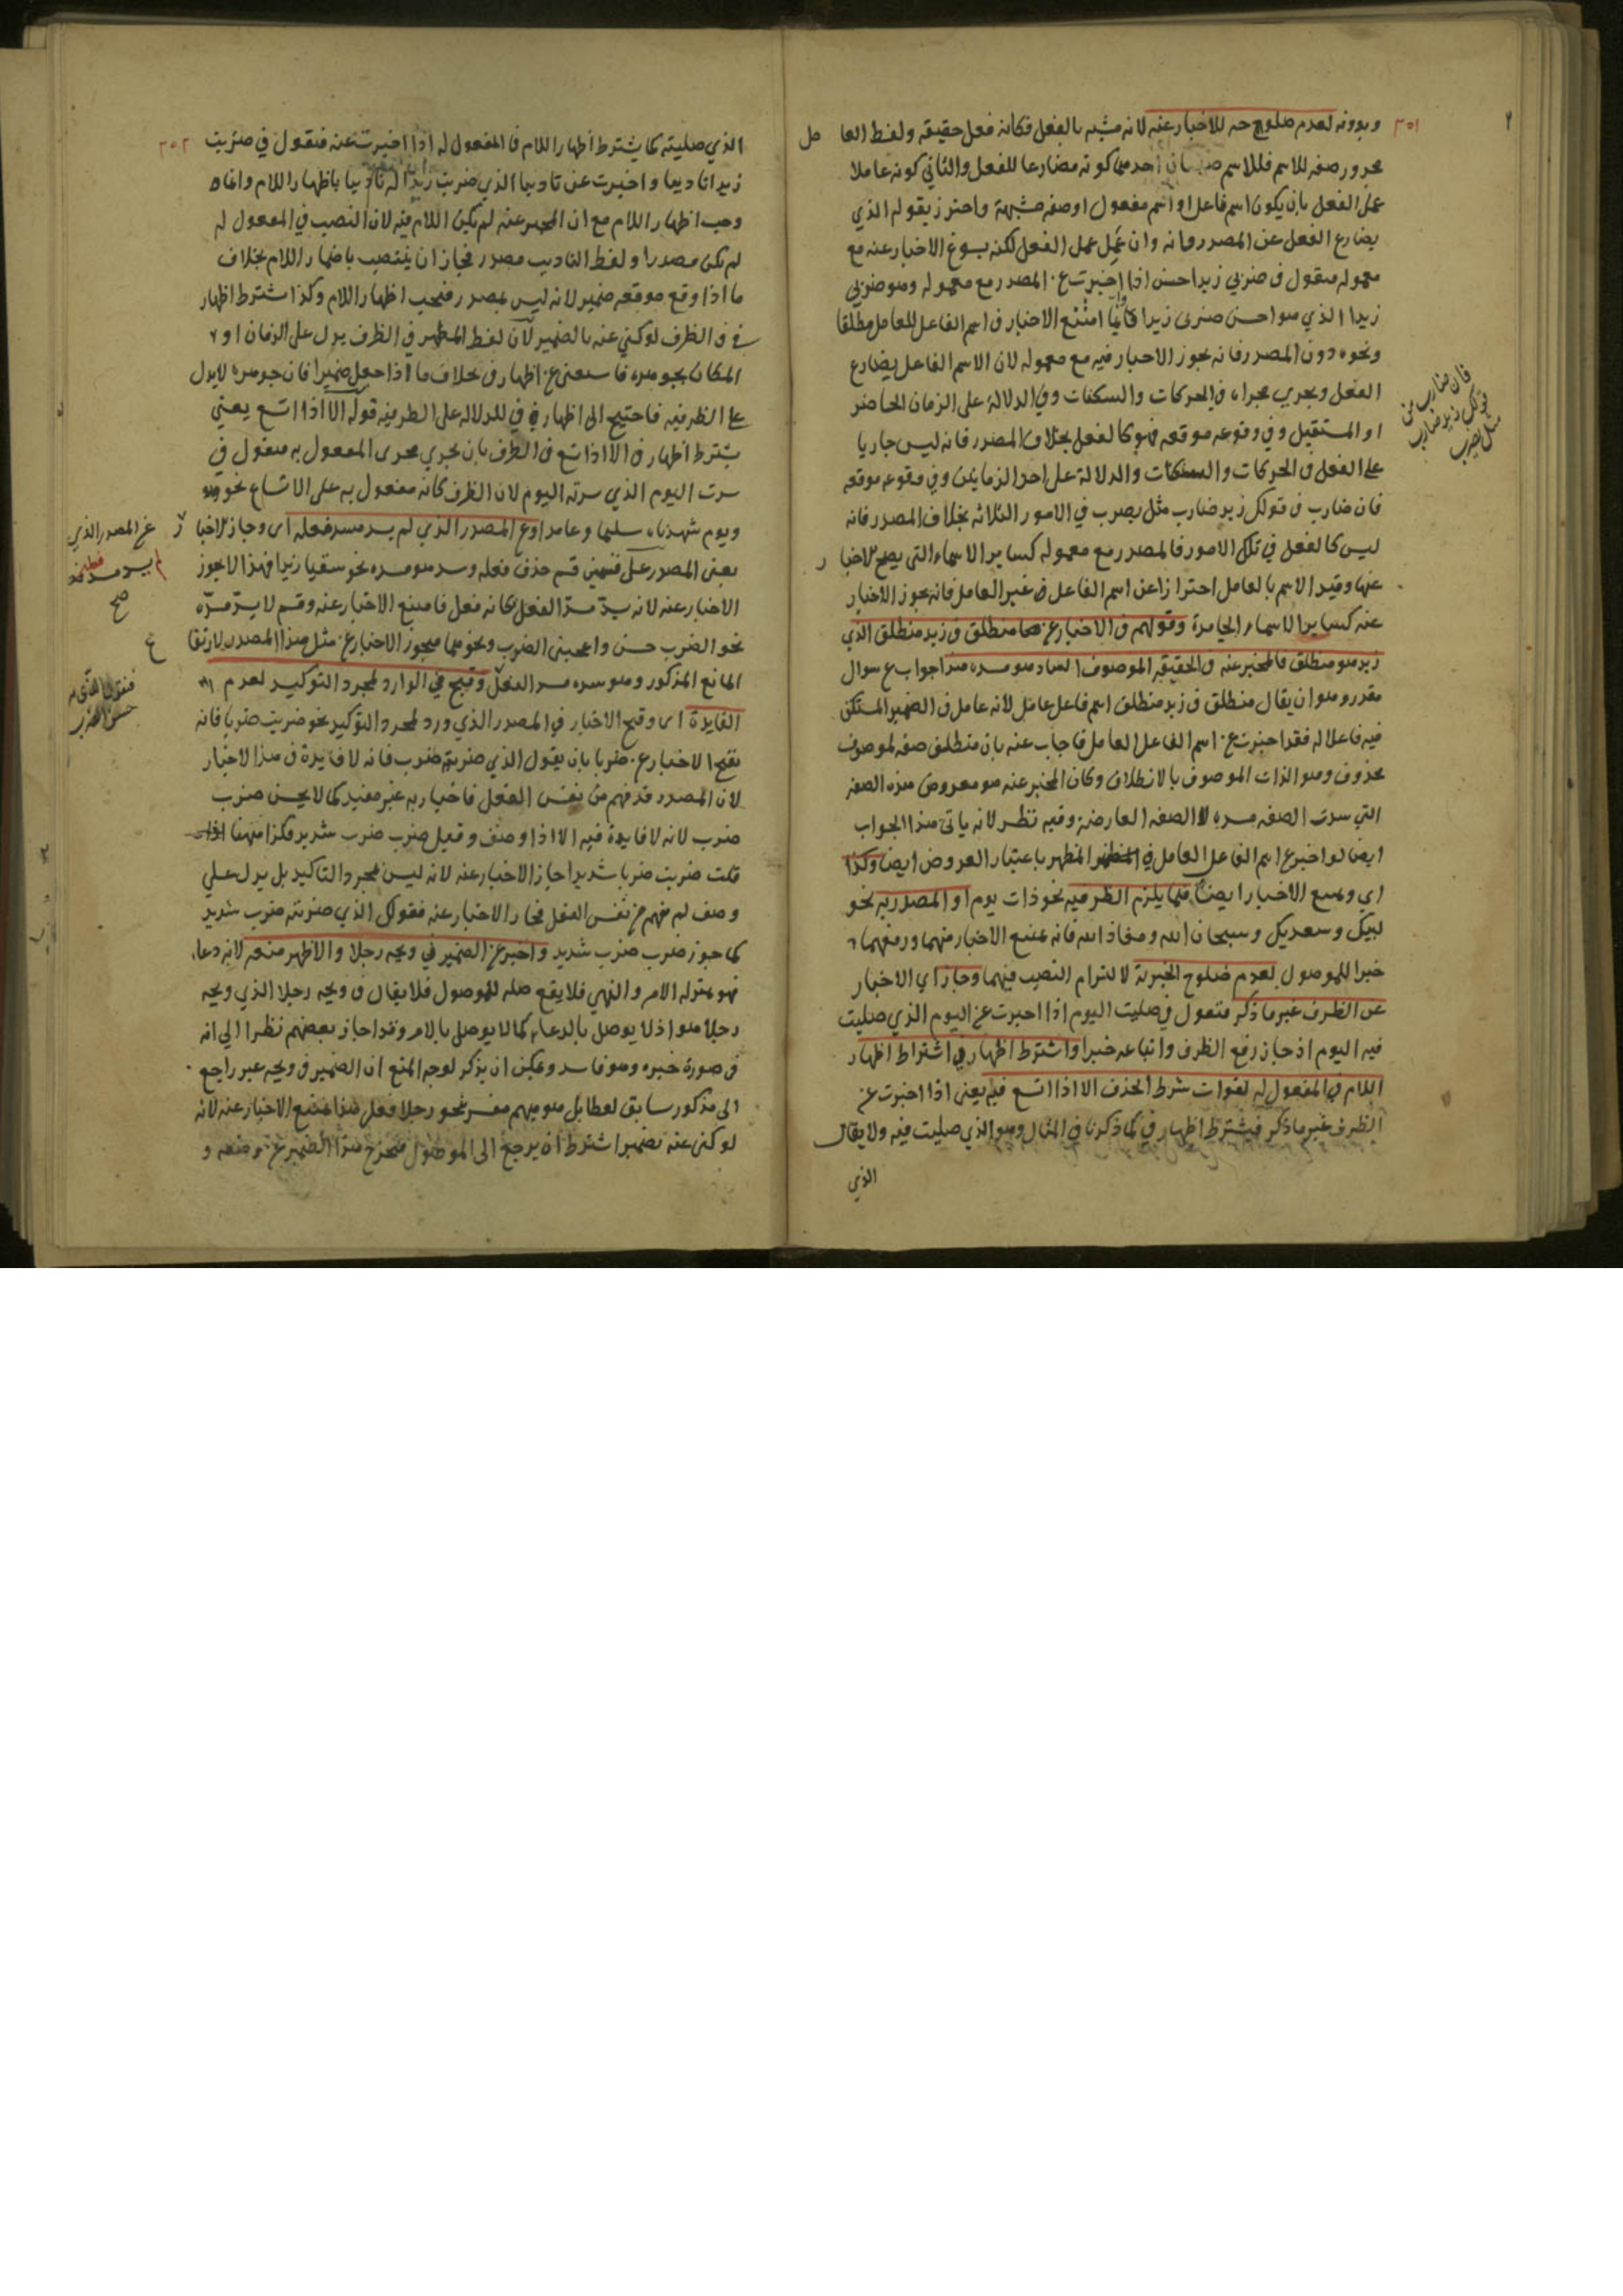 ٣٥١
وبدونه لعدم صلوحه للاخبار عنه لانه مشبه بالفعل فكانه فعل حقيقه ولفظ العامل
مجرور صفه للاسم فللاسم احدهما كونه مضارعا للفعل والثاني كونه عاملا
عمل الفعل بان يكون اسم فاعل او اسم مفعول او صفه مشبهة واحترز بقوله الذي
يضارع الفعل عن المصدر فانه وان عمل عمل الفعل لكنه يسوغ الاخبار عنه مع
معموله فتقول في ضربي زيدا حسن اذا اخبرت عن المصدر مع معموله وهو ضربي
زيدا الذي هو احسن ضربى زيدا وانما امتنع الاخبار في اسم الفاعل للعامل مطلقا
ونحوه دون المصدر فانه يجوز الاخبار فيه مع معموله لان الاسم الفاعل يضارع
الفعل ويجري مجراه في الحركات والسكنات وفي الدلالة على الزمان الحاضر
او المستقبل وفي وقوعه موقعه فهو كالفعل بخلاف المصدر فانه ليس جاريا
على الفعل في الحركات والسكنات والدلالة على احد الزمانين وفي وقوعه موقعه
فان ضارب في قولك زيد ضارب مثل يضرب في الامور الثلاثه بخلاف المصدر فانه
ليس كالفعل في تلك الامور فالمصدر مع معموله كساير الاسماء التي يصح الاخبار
عنها وقيد الاسم بالعامل احترازا عن اسم الفاعل في غير العامل فانه يجوز الاخبار
عنه كساير الاسماء الجامدة وقولهم في الاخبار عن منطلق في زيد منطلق الذي
زيد هو منطلق فالمخبر عنه في الحقيقه الموصوف الساد هو مسده هذا جواب ع سوال
مقدر وهو ان يقال منطلق في زيد منطلق اسم فاعل عامل لانه عامل في الضمير المستكن
فيه فاعلا له فقد اخبرت عن اسم الفاعل العامل فاجاب عنه بان منطلق صفه لموصوف
محذوف وهو الذات الموصوف بالانطلاق وكان المخبر عنه هو معروض هذه الصفه
التي سدت الصفه مسده لا الصفه العارضة وفيه نظر لانه ياتي هذا الجواب
ايضا لو اخبر ع اسم الفاعل العامل في المظهر باعتبار العروض ايضا وكذا
اي ويمتنع الاخبار ايضا فيما يلزم الظرفيه نحو ذات يوم او المصدريه نحو
لبيك وسعديك وسبحان الله ومعاذ الله فانه يمتنع الاخبار فيهما ورفعهما
خبرا للموصول لعدم صلوح الخبرية لالتزام النصب فيهما وجاز اي الاخبار
عن الظرف غير ما ذكر فتقول في صليت اليوم اذا اخبرت عن اليوم الذي صليت
فيه اليوم اذ جاز رفع الظرف واتباعه خبرا واشترط اظهار في اشتراط اظهار
اللام في المفعول له لفوات شرط الحذف الا اذا اتسع فيه يعني اذا اخبرت عن
الظرف غير ما ذكر فيشترط اظهار في كما ذكرنا في المثال وهو الذي صليت فيه ولا يقال
الذي
فان ضارب من
قولك زيد ضارب
مثل يضرب
٣٥٢
الذي صليته كما يشترط اظهار اللام في المفعول له اذا اخبرت عنه فتقول في ضربت
زيدا تاديبا واخبرت عن تاديبا الذي ضربت زيدا له تاديبا باظهار اللام وانما
وجب اظهار اللام مع ان المخبر عنه لم يكن اللام فيه لان النصب في المفعول له
لم يكن مصدرا ولفظ التاديب مصدر فجاز ان ينتصب باضمار اللام بخلاف
ما اذا وقع موقعه ضمير لانه ليس بمصدر فيجب اظهار اللام وكذا اشترط اظهار
في في الظرف لو كني عنه بالضمير لان لفظ المظهر في الظرف يدل على الزمان او
المكان بجوهره فاستغنى عن اظهار في بخلاف ما اذا جعل ضميرا فان جوهره لا يدل
على الظرفيه فاحتيج الى اظهار في للدلاله على الظرفيه قوله الا اذا اتسع يعني
يشترط اظهار في الا اذا اتسع في الظرف بان يجري مجرى المفعول به فتقول في
سرت اليوم الذي سرته اليوم لان الظرف كانه مفعول به على الاتساع نحو
ويوم شهدناه سليما وعامرا وع المصدر الذي لم يسد مسد فعله اى وجاز الاخبار
يعنى المصدر على قسمين قسم حذف فعله وسد هو مسده نحو سقيا زيدا فهذا لا يجوز
الاخبار عنه لانه يسد مسد الفعل فكانه فعل فامتنع الاخبار عنه وقسم لا يسد مسده
نحو الضرب حسن واعجبنى الضرب ونحوهما فيجوز الاخبار عن مثل هذا المصدر لارتفاع
المانع المذكور وهو سده مسد الفعل وقبح في الوارد لمجرد التوكيد لعدم
الفايدة اى وقبح الاخبار في المصدر الذي ورد لمجرد التوكيد نحو ضربت ضربا فانه
يقبح الاخبار عن ضربا بان يقول الذي ضربته ضرب فانه لا فايدة في هذا الاخبار
لان المصدر قد فهم من نفس الفعل فاخباره غير مفيد كما لا يحسن ضرب
ضرب لانه لا فايدة فيه الا اذا وصف وقيل ضرب ضرب شديد فكذا ههنا اذا
قلت ضربت ضربا شديدا جاز الاخبار عنه لانه ليس لمجرد التاكيد بل يدل على
وصف لم يفهم من نفس الفعل فجاز الاخبار عنه فقولك الذي ضربته ضرب شديد
كما جوز ضرب ضرب شديد واخبر عن الضمير في ويحه رجلا والاظهر منعه لانه دعاء
فهو بمنزله الامر والنهي فلا يقع صله للموصول فلا يقال في ويحه رجلا الذي ويحه
رجلا هو اذ لا يوصل بالدعاء كما لا يوصل بالامر وقد اجاز بعضهم نظرا الي انه
في صورة خبره وهو فاسد ويمكن ان يذكر لوجه المنع ان الضمير في ويحه غير راجع
الى مذكور سابق لفظا بل هو مبهم مفسر نحو رجلا فعلى هذا يمتنع الاخبار عنه لانه
لو كنى عنه بضمير اشترط ان يرجع الى الموصول فيخرج هذا الضمير عن وضعه و
عن المصدر الذي
لم يسد مسد فعله
صح
فتقول الذي هو
حسن الضرب